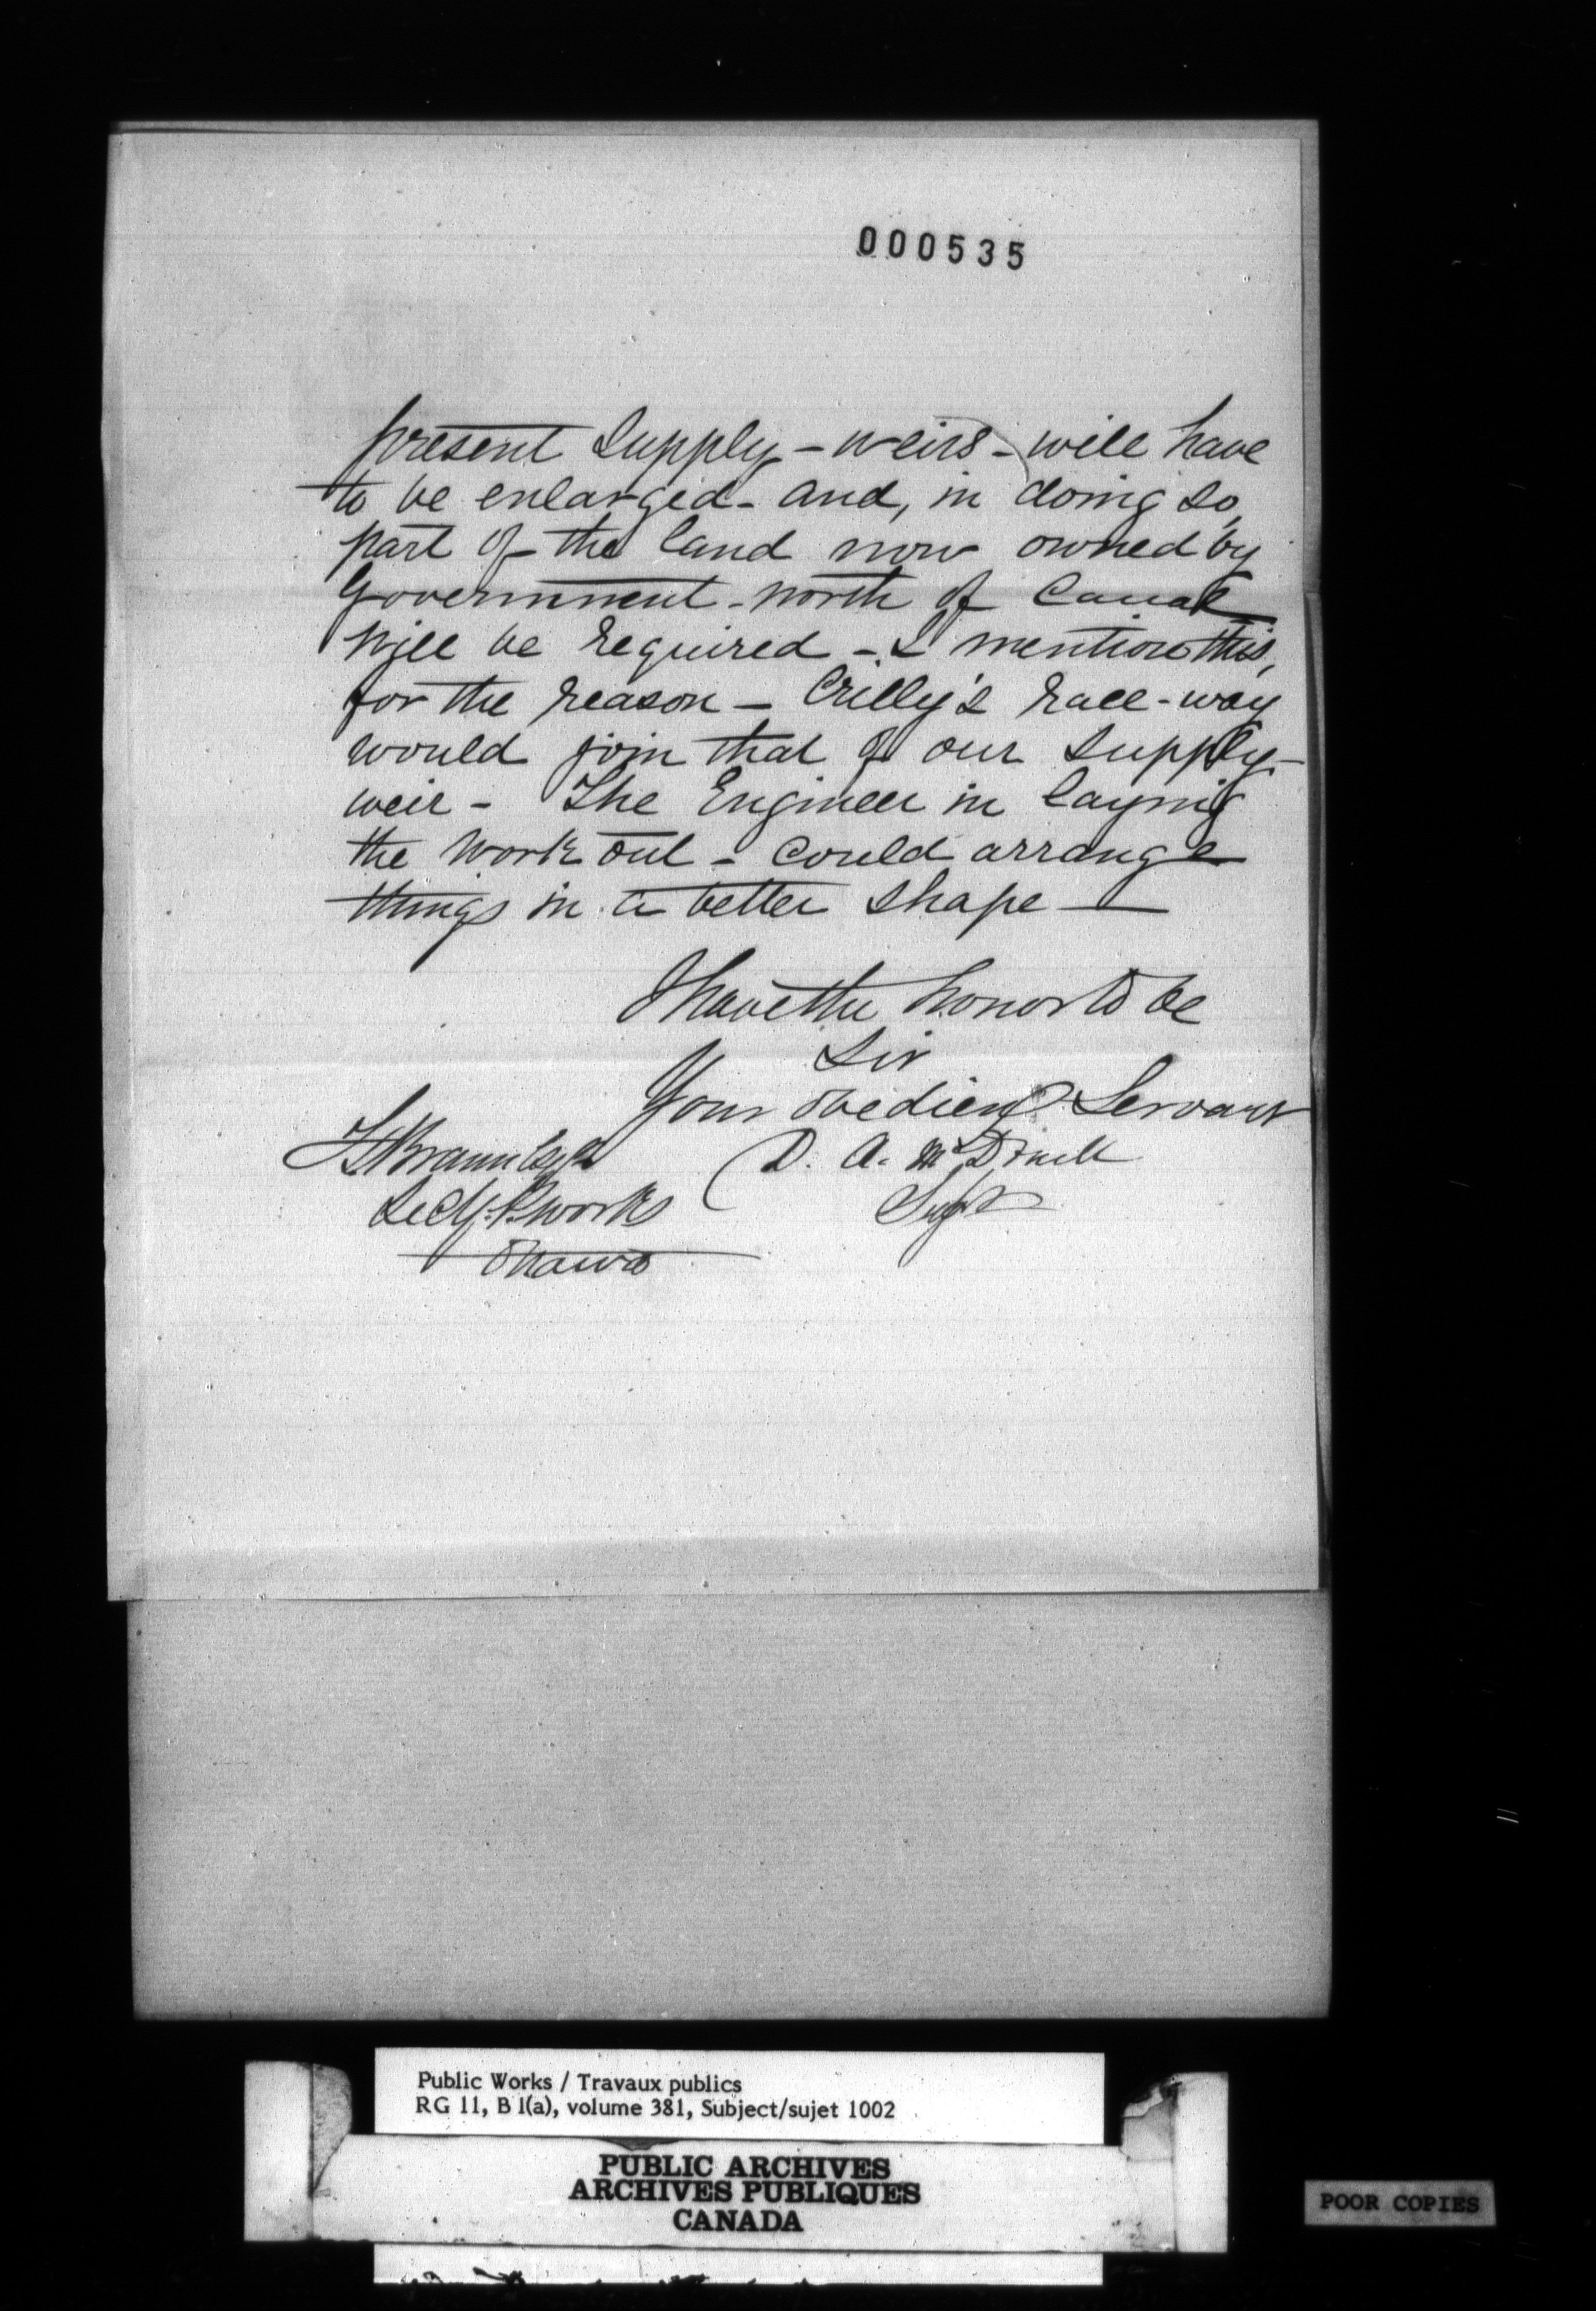 000535
present Supply-weirs - will have
to be enlarged - and, in doing so,
part of the land now owned by
Government - north of Canal
will be required - I mention this,
for the reason - Crilly's Race-way
would join that of our Supply-
weir - The Engineer in laying
the work out - could arrange
things in a better shape -
I have the honor to be
Sir
Your obedient Servant
F Braun Esqr
D. A. McDonell
Secy. P. works
Supt
Ottawa
Public Works / Travaux publics
RG 11, B 1(a), volume 381, Subject/sujet 1002
PUBLIC ARCHIVES
ARCHIVES PUBLIQUES
CANADA
POOR COPIES